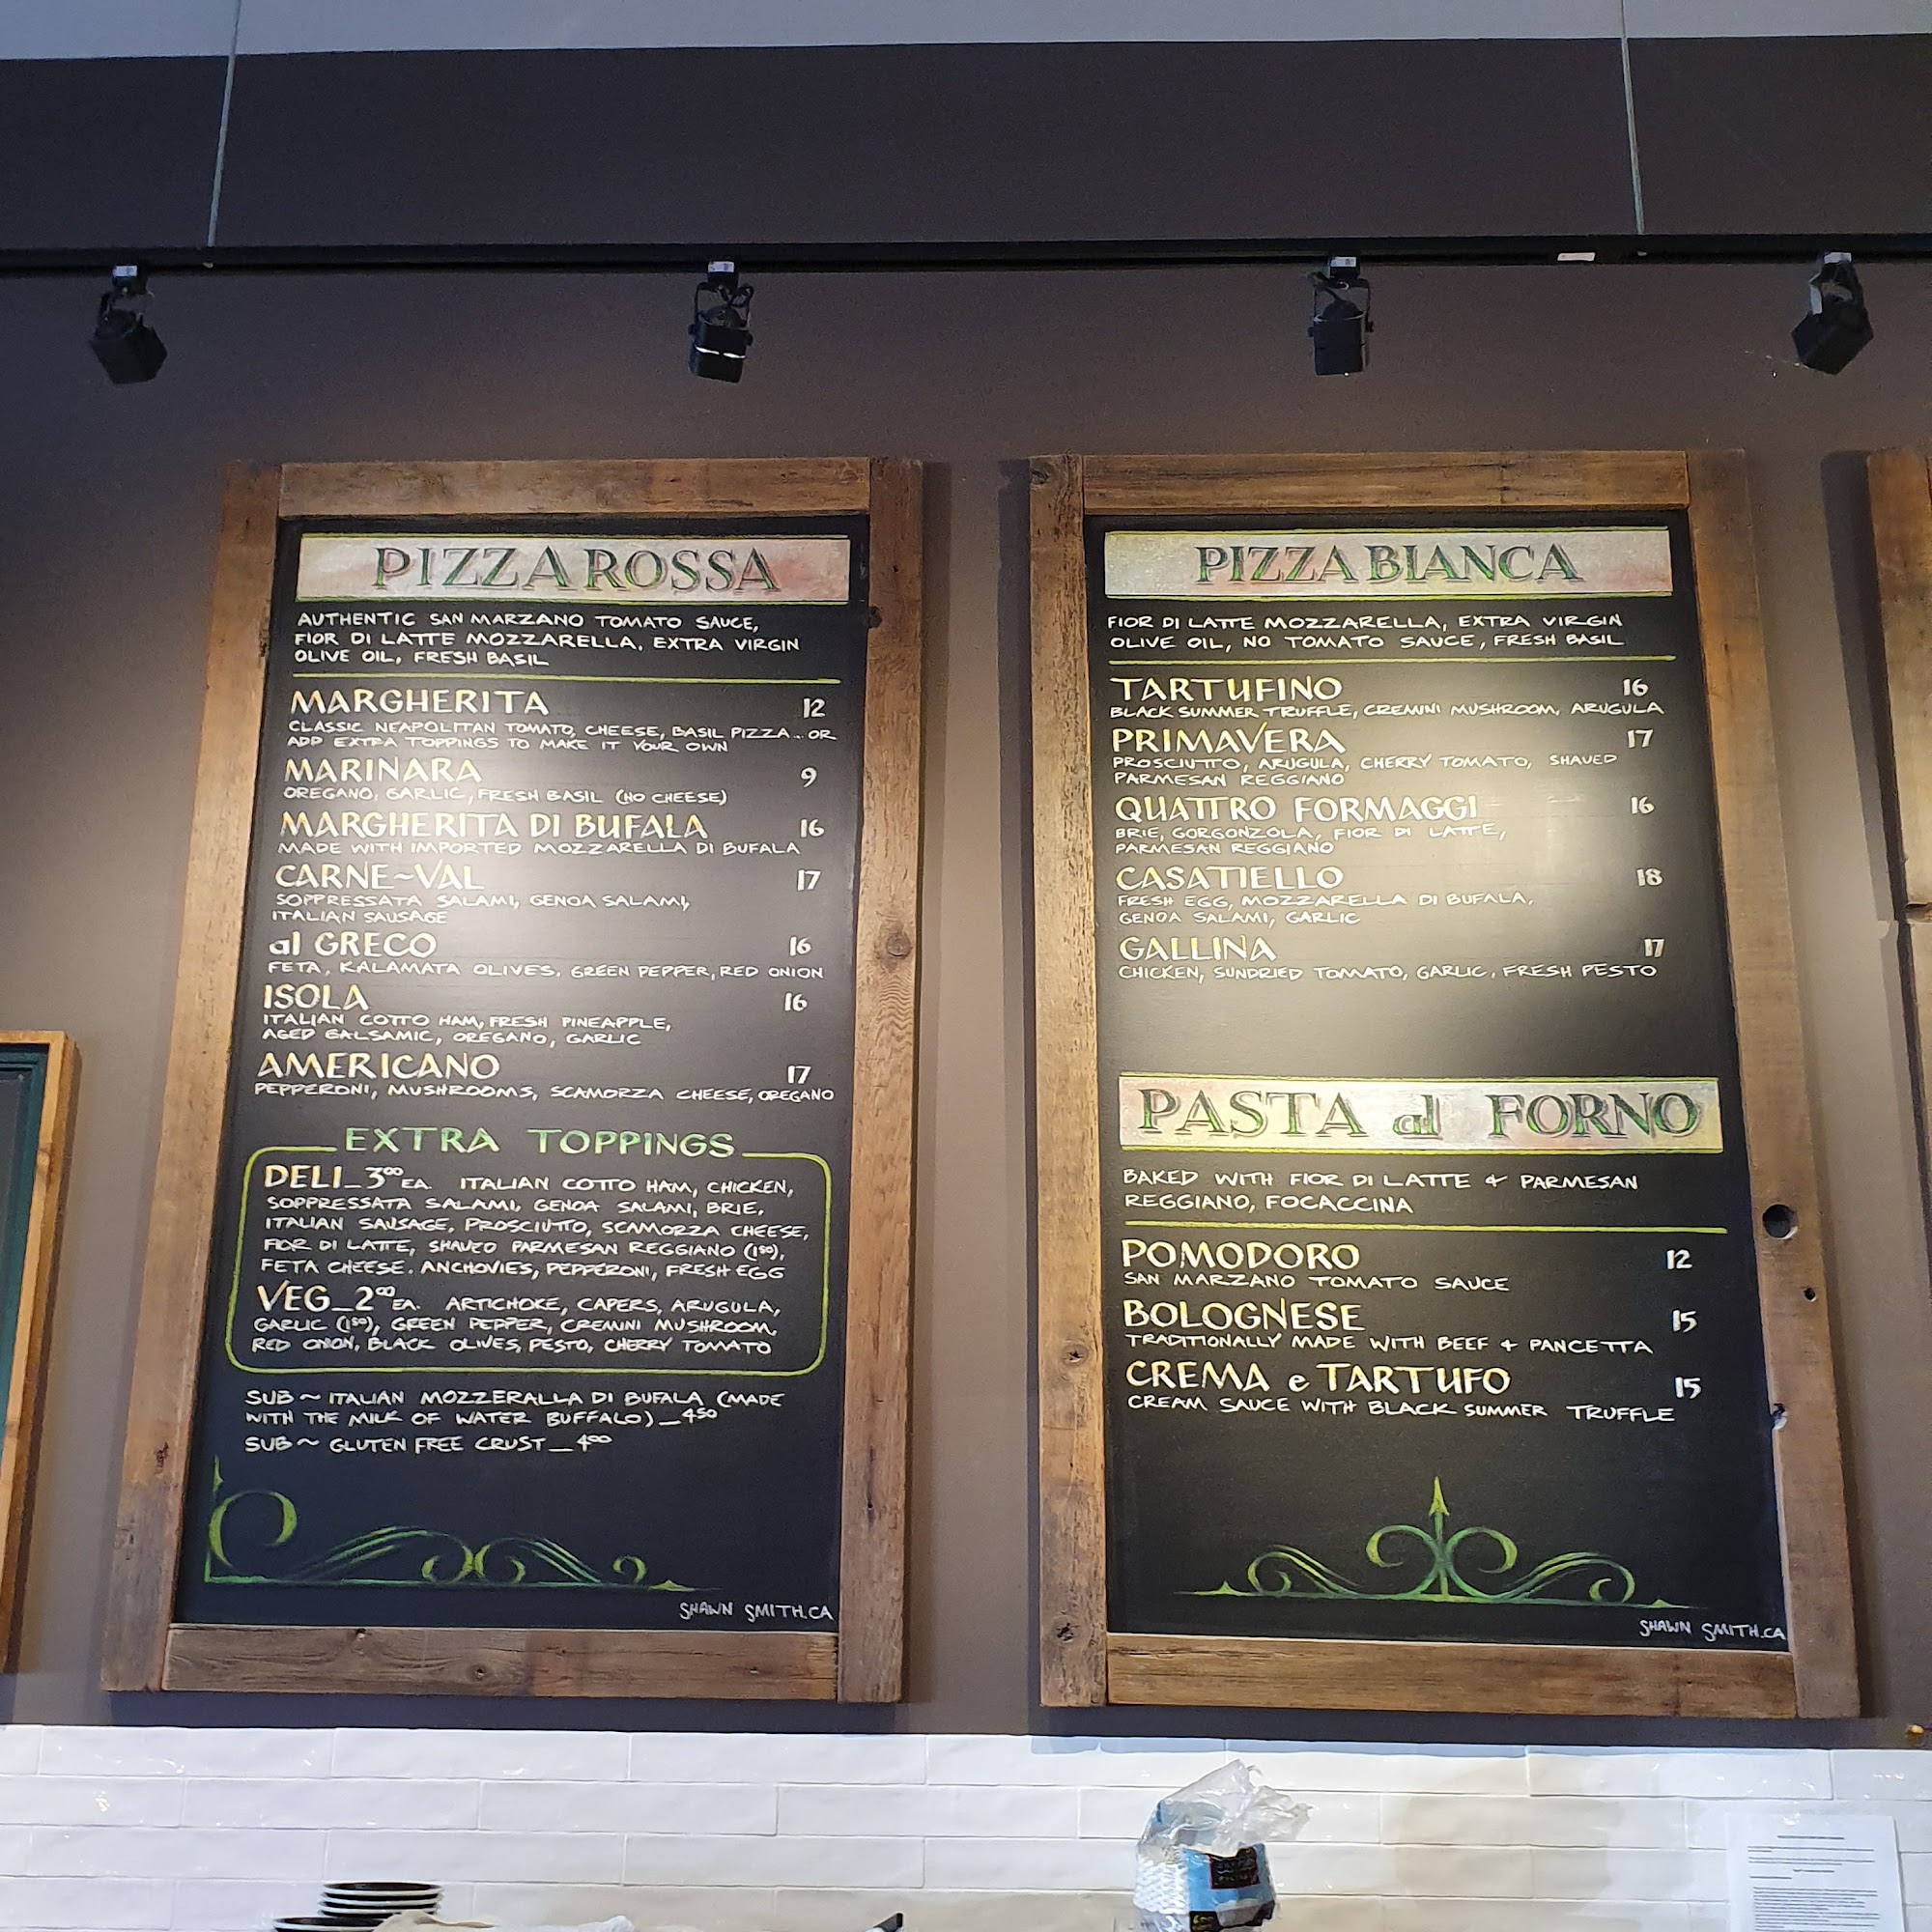 PIZZA ROSSA
AUTHENTIC SAN MARZANO TOMATO SAUCE,
FIOR DI LATTE MOZZARELLA, EXTRA VIRGIN
OLIVE OIL, FRESH BASIL
MARGHERITA 12
CLASSIC NEAPOLITAN TOMATO, CHEESE, BASIL PIZZA... OR
ADD EXTRA TOPPINGS TO MAKE IT YOUR OWN
MARINARA 9
OREGANO, GARLIC, FRESH BASIL (NO CHEESE)
MARGHERITA DI BUFALA 16
MADE WITH IMPORTED MOZZARELLA DI BUFALA
CARNE~VAL 17
SOPPRESSATA SALAMI, GENOA SALAMI,
ITALIAN SAUSAGE
al GRECO 16
FETA, KALAMATA OLIVES, GREEN PEPPER, RED ONION
ISOLA 16
ITALIAN COTTO HAM, FRESH PINEAPPLE,
AGED BALSAMIC, OREGANO, GARLIC
AMERICANO 17
PEPPERONI, MUSHROOMS, SCAMORZA CHEESE, OREGANO
EXTRA TOPPINGS
DELI_3⁰⁰ EA. ITALIAN COTTO HAM, CHICKEN,
SOPPRESSATA SALAMI, GENOA SALAMI, BRIE,
ITALIAN SAUSAGE, PROSCIUTTO, SCAMORZA CHEESE,
FIOR DI LATTE, SHAVED PARMESAN REGGIANO (1⁵⁰),
FETA CHEESE, ANCHOVIES, PEPPERONI, FRESH EGG
VEG_2⁰⁰ EA. ARTICHOKE, CAPERS, ARUGULA,
GARLIC (1⁵⁰), GREEN PEPPER, CREMINI MUSHROOM,
RED ONION, BLACK OLIVES, PESTO, CHERRY TOMATO
SUB ~ ITALIAN MOZZERALLA DI BUFALA (MADE
WITH THE MILK OF WATER BUFFALO)_4⁵⁰
SUB ~ GLUTEN FREE CRUST_4⁰⁰
SHAWN SMITH.CA
PIZZA BIANCA
FIOR DI LATTE MOZZARELLA, EXTRA VIRGIN
OLIVE OIL, NO TOMATO SAUCE, FRESH BASIL
TARTUFINO 16
BLACK SUMMER TRUFFLE, CREMINI MUSHROOM, ARUGULA
PRIMAVERA 17
PROSCIUTTO, ARUGULA, CHERRY TOMATO, SHAVED
PARMESAN REGGIANO
QUATTRO FORMAGGI 16
BRIE, GORGONZOLA, FIOR DI LATTE,
PARMESAN REGGIANO
CASATIELLO 18
FRESH EGG, MOZZARELLA DI BUFALA,
GENOA SALAMI, GARLIC
GALLINA 17
CHICKEN, SUNDRIED TOMATO, GARLIC, FRESH PESTO
PASTA al FORNO
BAKED WITH FIOR DI LATTE & PARMESAN
REGGIANO, FOCACCINA
POMODORO 12
SAN MARZANO TOMATO SAUCE
BOLOGNESE 15
TRADITIONALLY MADE WITH BEEF & PANCETTA
CREMA e TARTUFO 15
CREAM SAUCE WITH BLACK SUMMER TRUFFLE
SHAWN SMITH.CA